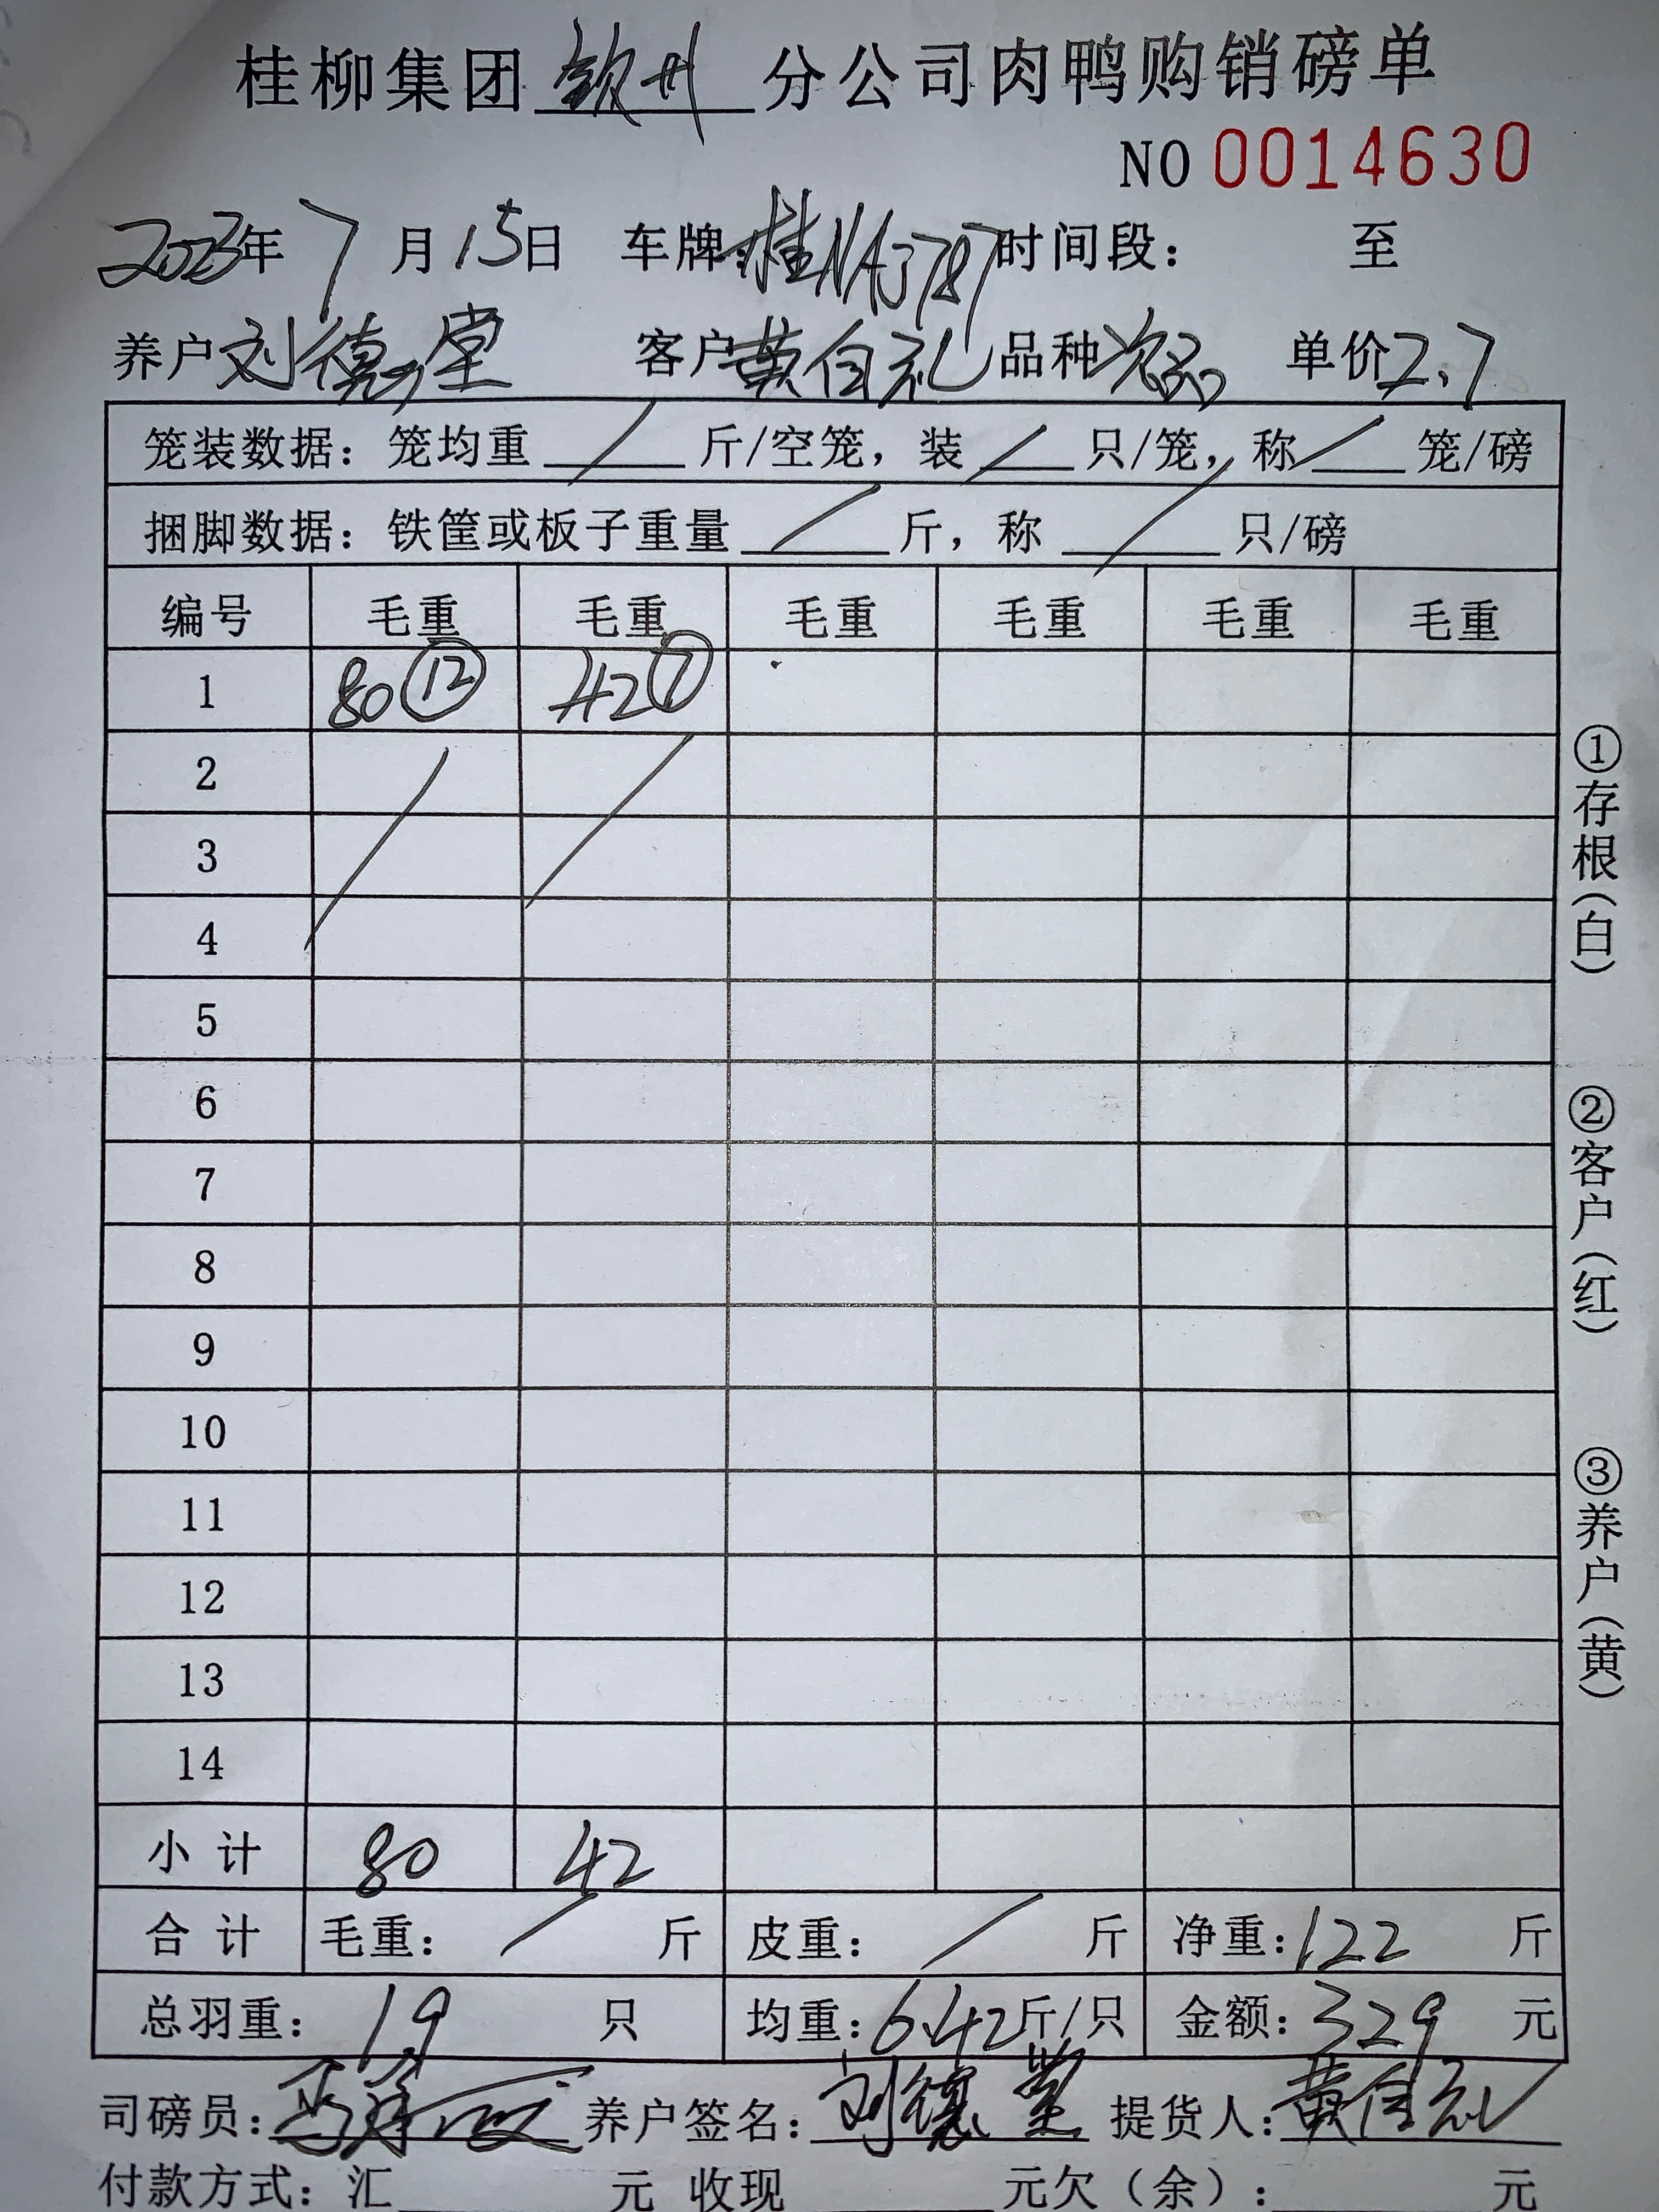 桂柳集团钦州分公司肉鸭购销磅单
NO 0014630
2023年7月15日 车牌:桂NA3787时间段： 至
养户刘德堂 客户黄自礼 品种次品 单价2.7
笼装数据：笼均重/斤/空笼，装/只/笼，称/笼/磅
捆脚数据：铁筐或板子重量/斤，称/只/磅
编号 毛重 毛重 毛重 毛重 毛重 毛重
1 80⑫ 42⑦
2
3
4
5
6
7
8
9
10
11
12
13
14
小计 80 42
合计 毛重：/斤 皮重：/斤 净重:122斤
总羽重：19只 均重:6.42斤/只 金额:329元
司磅员: 养户签名:刘德堂 提货人:黄自礼
付款方式：汇 元 收现 元欠（余）： 元
①存根（白）
②客户（红）
③养户（黄）